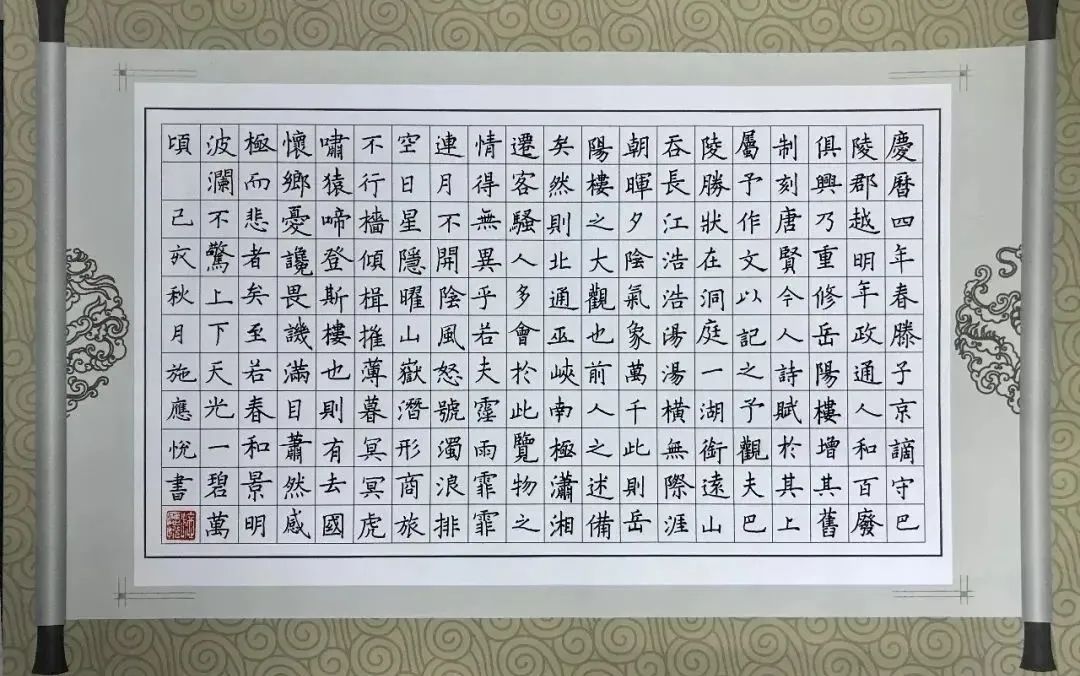 慶曆四年春滕子京謫守巴
陵郡越明年政通人和百廢
俱興乃重修岳陽樓增其舊
制刻唐賢今人詩賦於其上
屬予作文以記之予觀夫巴
陵勝狀在洞庭一湖銜遠山
吞長江浩浩湯湯橫無際涯
朝暉夕陰氣象萬千此則岳
陽樓之大觀也前人之述備
矣然則北通巫峽南極瀟湘
遷客騷人多會於此覽物之
情得無異乎若夫霪雨霏霏
連月不開陰風怒號濁浪排
空日星隱曜山嶽潛形商旅
不行檣傾楫摧薄暮冥冥虎
嘯猿啼登斯樓也則有去國
懷鄉憂讒畏譏滿目蕭然感
極而悲者矣至若春和景明
波瀾不驚上下天光一碧萬
頃 己亥秋月施應悅書